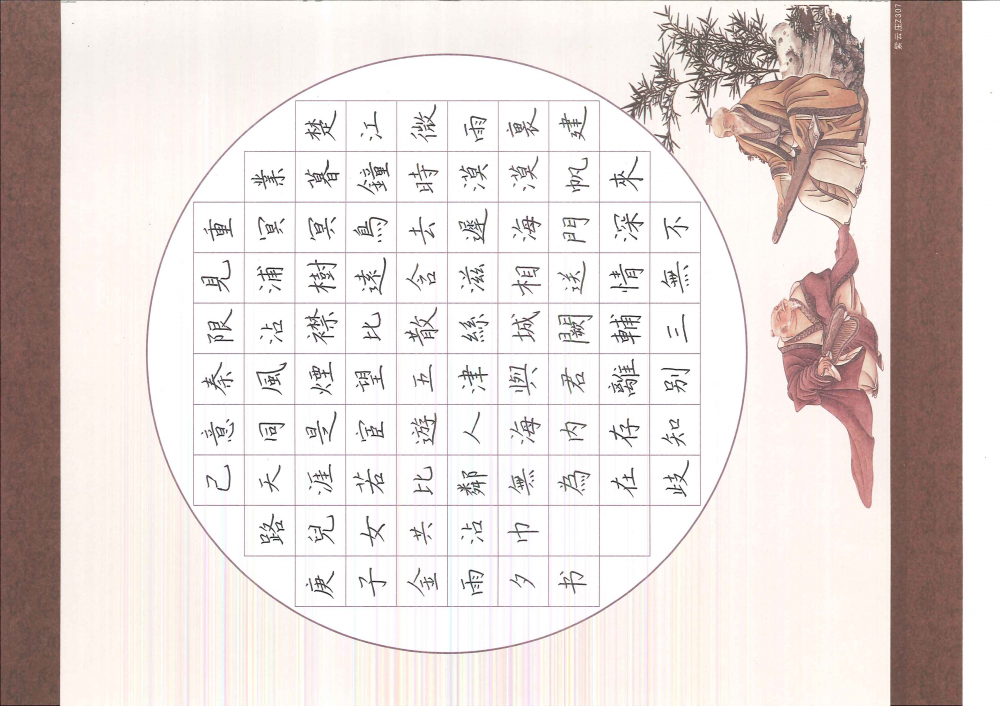 楚江微雨裏建
業暮鐘時漠漠帆來
重冥冥鳥去遲海門深不
見浦樹遠含滋相送情無
限沾襟比散絲城闕輔三
秦風煙望五津與君離別
意同是宦遊人海內存知
己天涯若比鄰無為在歧
路兒女共沾巾
庚子金雨夕书
紫云庄Z307